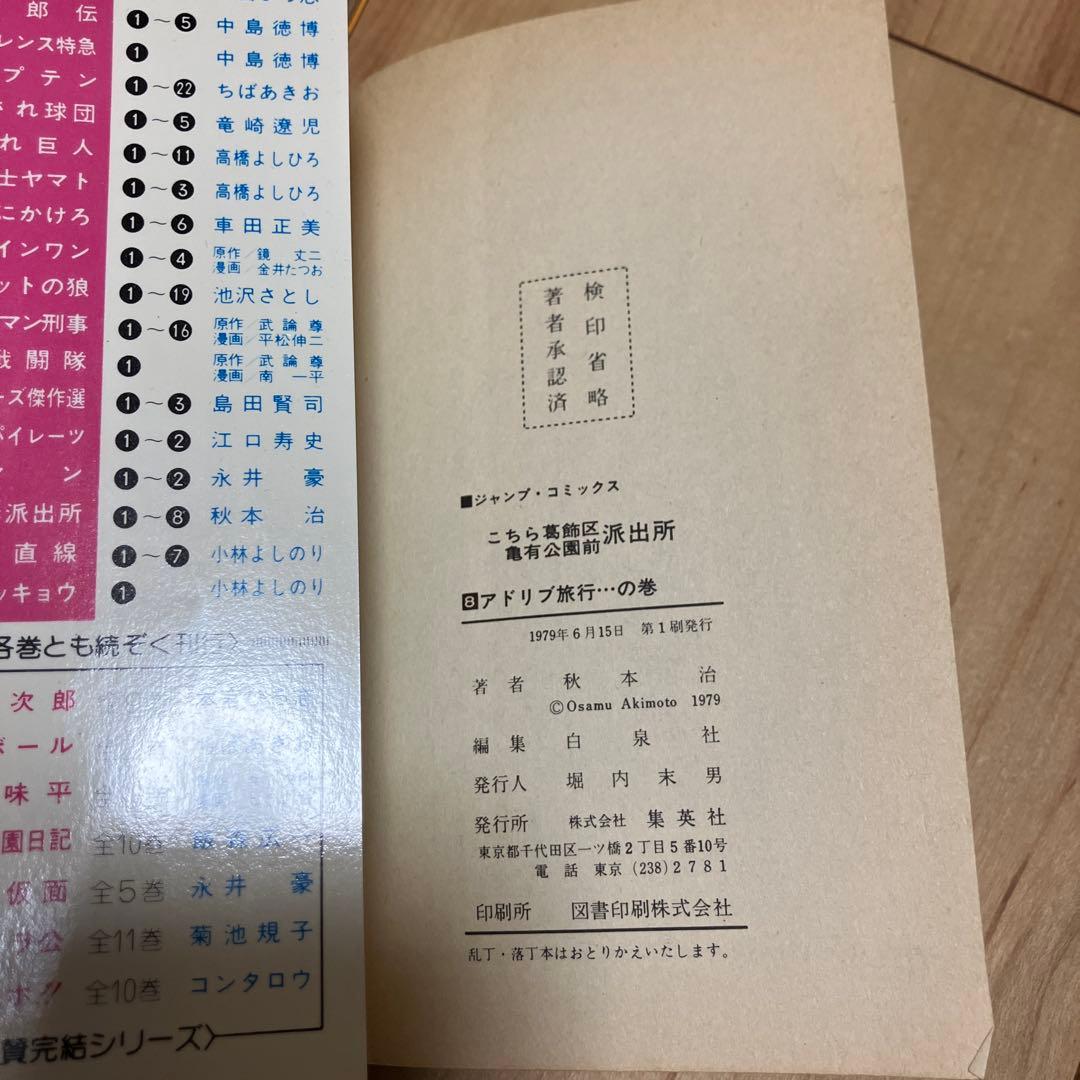 郎伝 1〜5 中島徳博
レンス特急 1 中島徳博
プテン 1〜22 ちばあきお
れ球団 1〜5 竜崎遼児
れ巨人 1〜11 高橋よしひろ
士ヤマト 1〜3 高橋よしひろ
にかけろ 1〜6 車田正美
インワン 1〜4 原作/鏡丈二
漫画/金井たつお
ットの狼 1〜19 池沢さとし
マン刑事 1〜16 原作/武論尊
漫画/平松伸二
戦闘隊 1 原作/武論尊
漫画/南一平
ーズ傑作選 1〜3 島田賢司
パイレーツ 1〜2 江口寿史
ン 1〜2 永井豪
派出所 1〜8 秋本治
直線 1〜7 小林よしのり
ッキョウ 1 小林よしのり
各巻とも続ぞく刊行〉
次郎
ボール
味平
園日記 全10巻
仮面 全5巻 永井豪
公 全11巻 菊池規子
ポ!! 全10巻 コンタロウ
賛完結シリーズ〉
検印省略
著者承認済
■ジャンプ・コミックス
こちら葛飾区
亀有公園前派出所
8アドリブ旅行…の巻
1979年6月15日 第1刷発行
著者 秋本治
©Osamu Akimoto 1979
編集 白泉社
発行人 堀内末男
発行所 株式会社 集英社
東京都千代田区一ツ橋2丁目5番10号
電話 東京(238)2781
印刷所 図書印刷株式会社
乱丁・落丁本はおとりかえいたします。